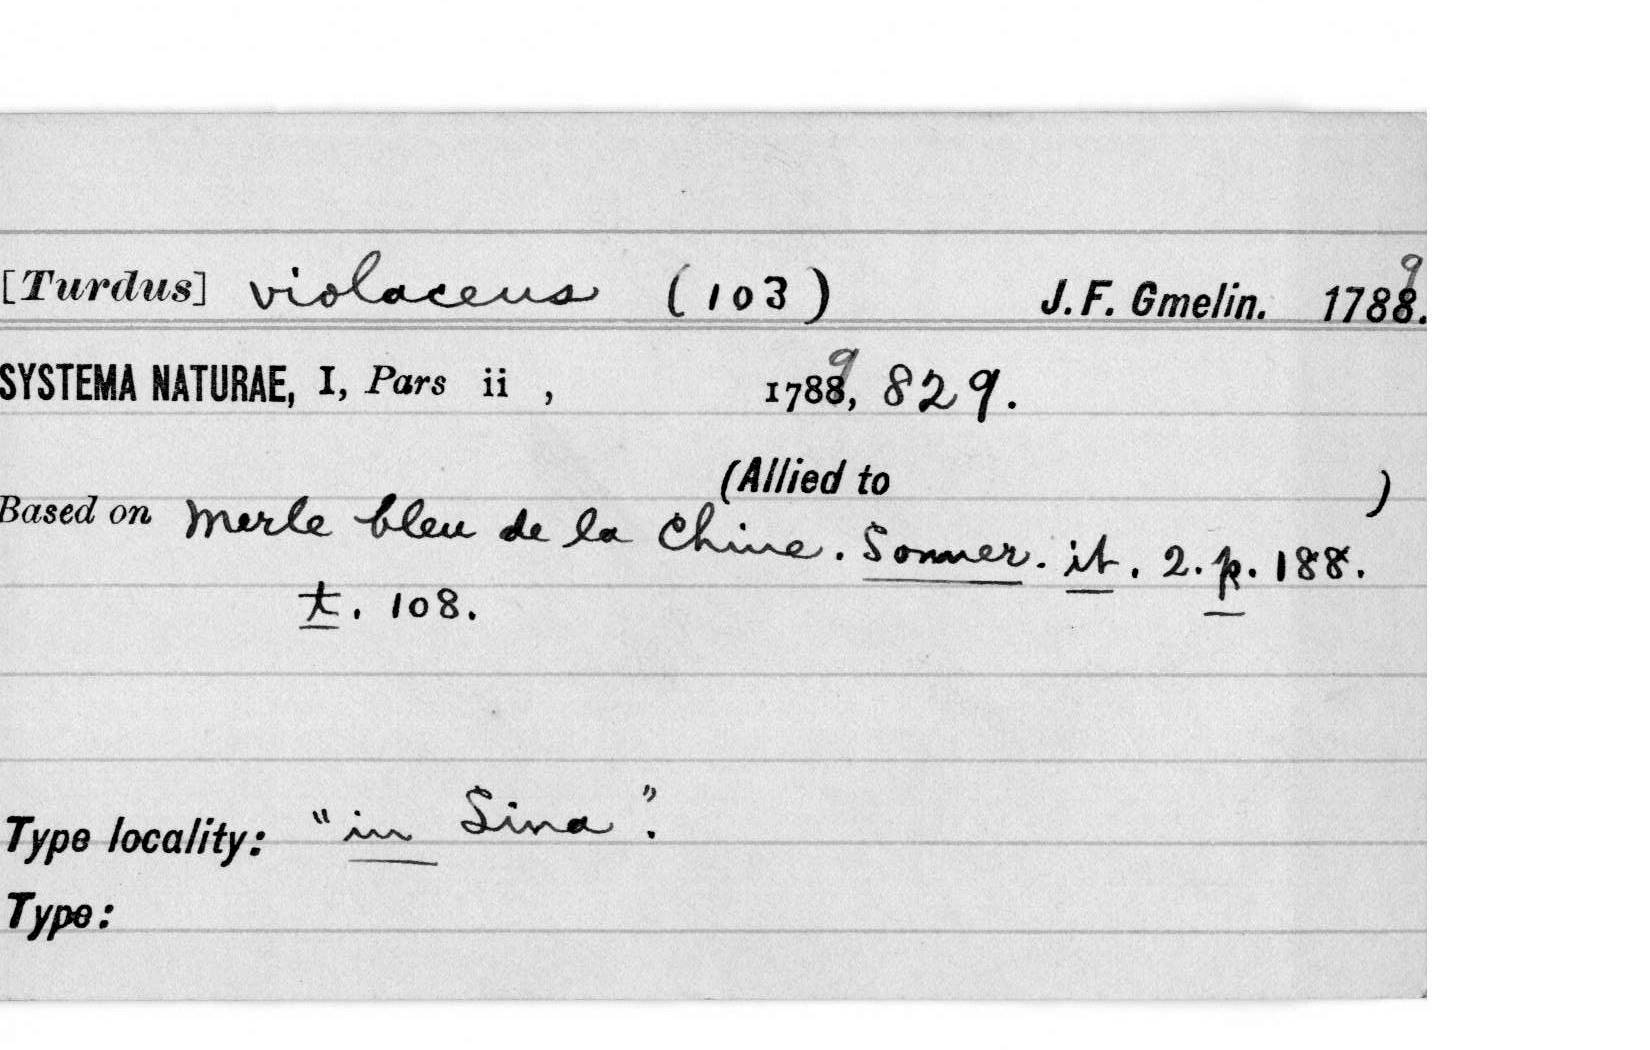 [Turdus] violaceus (103) J. F. Gmelin. 1788.9
SYSTEMA NATURAE, I, Pars ii , 17889, 829.
(Allied to )
Based on Merle bleu de la Chine. Sonner. it. 2. p. 188.
t. 108.
Type locality: "in Sina".
Type: